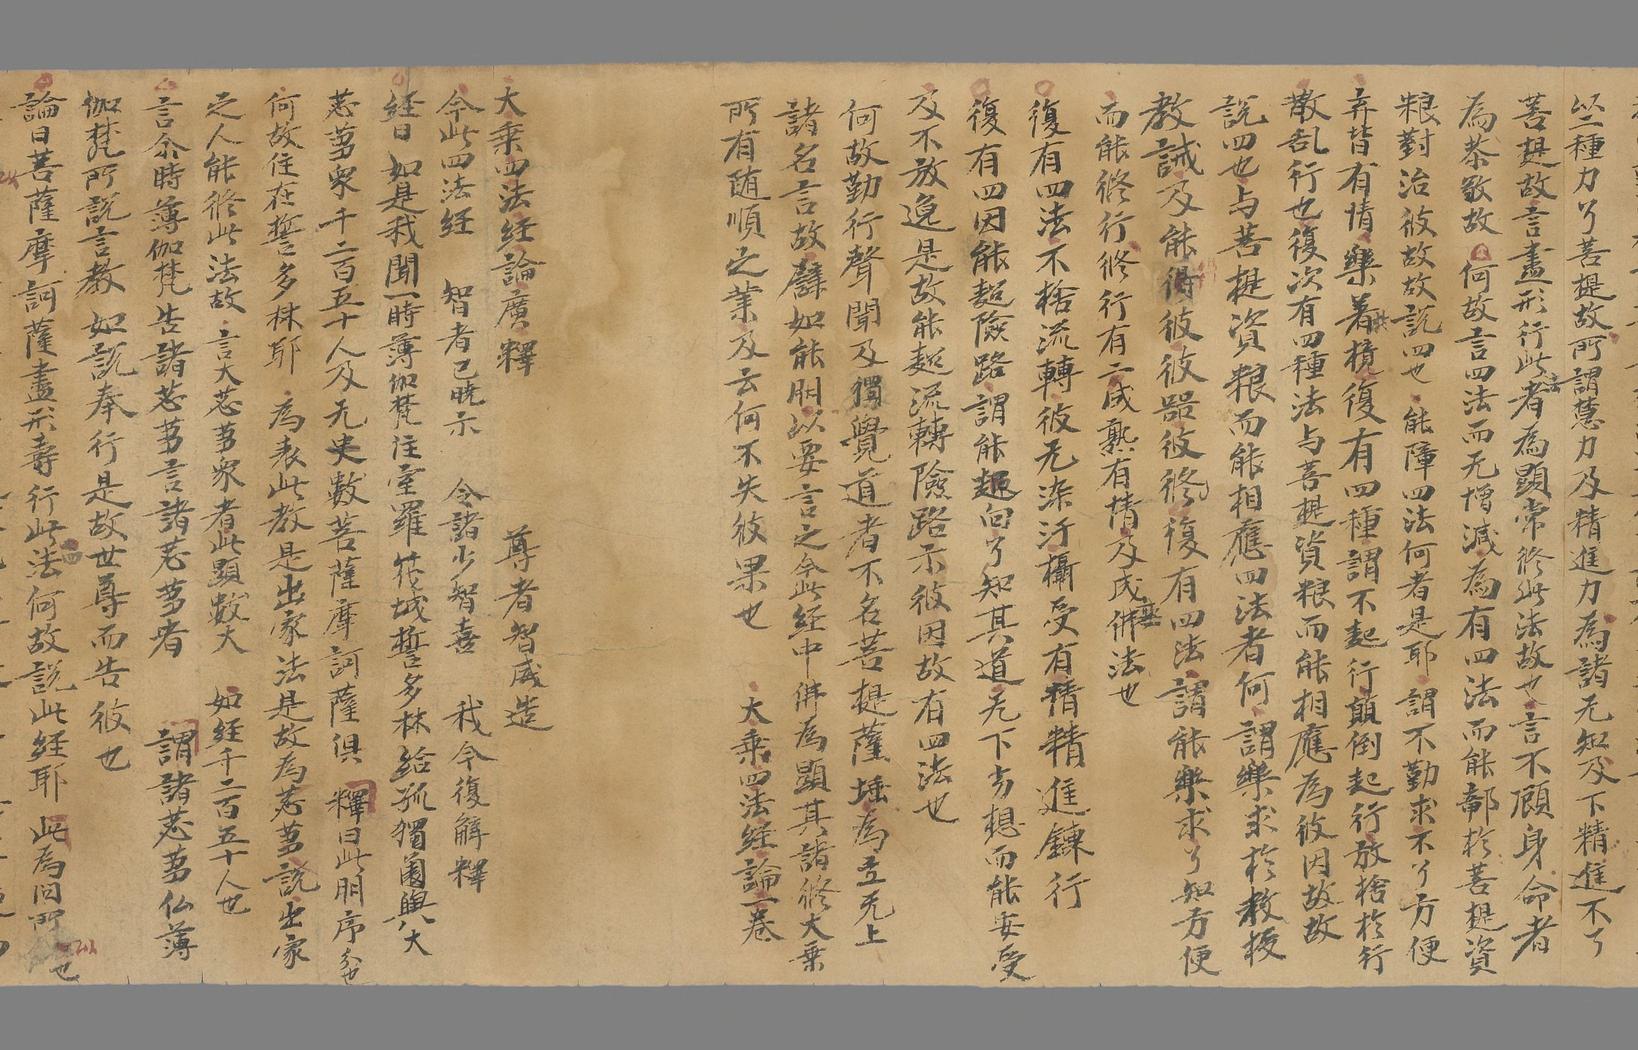 以二種力了菩提故所謂慧力及精進力為諸无知及下精進不了
菩提故言盡形行此法者為顯常修此法故也言不顧身命者
為恭敬故何故言四法而无增減為有四法而能鄣於菩提資
粮對治彼故故說四也能障四法何者是耶謂不勤求不了方便
弃皆有情樂著復有四種謂不起行顛倒起行放捨於行
散乱行也復次有四種法与菩提資粮而能相應為彼因故故
說四也与菩提資粮而能相應四法者何謂樂求於教授
教誡及能得彼彼器彼修復有四法謂能樂求了知方便
而能修行修行有二成熟有情及成佛法也
復有四法不捨流轉彼无染汙攝受有情精進鍊行
復有四因能超險路謂能趣向了知其道无下劣想而能安受
及不放逸是故能超流轉險路示彼因故有四法也
何故勤行聲聞及獨覺道者不名菩提薩埵為立无上
諸名言故譬如能明以要言之今此經中佛為顯其諸修大乗
所有随順之業及云何不失彼果也 大乗四法經論一卷
大乗四法經論廣釋 尊者智威造
今此四法經 智者已暁示 令諸少智喜 我今復解釋
經曰如是我聞一時薄伽梵住室羅茷城誓多林給孤獨薗與大
苾蒭衆千二百五十人及无史數菩薩摩訶薩俱 釋曰此明序分也
何故住在誓多林耶 為表此教是出家法是故為苾蒭說出家
之人能修此法故言大苾蒭衆者此顯數大 如經千二百五十人也
言尒時薄伽梵告諸苾蒭言諸苾蒭者 謂諸苾蒭仏薄
伽梵所說言教如說奉行是故世尊而告彼也
論曰菩薩摩訶薩盡形壽行此法何故說此經耶 此為問所也